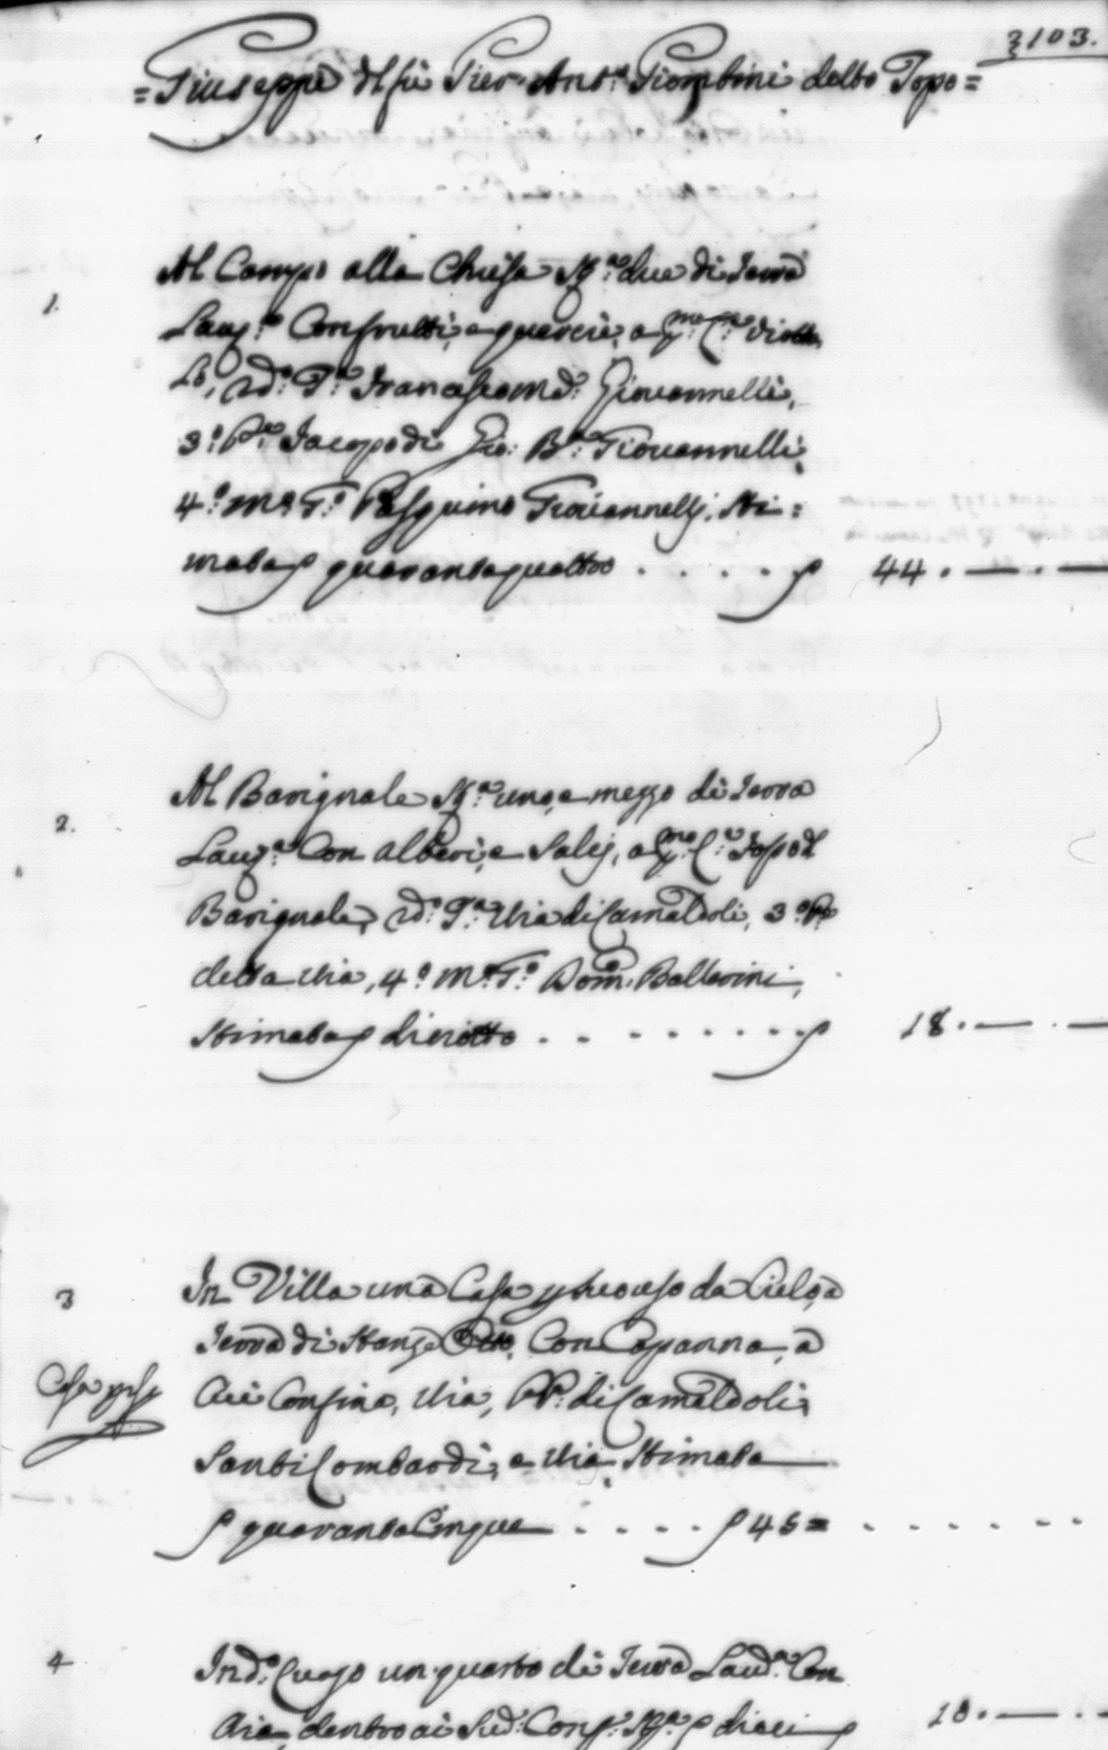 2103.
=Giuseppe del fù Pier Ant.o Piombini detto Topo=
1. Al Campo alla Chiesa due di Terra
Lau.a Con frutti, e quercie, a p.mo C.e
2d.o P.e Francescom.a Giovannelli,
3.o P.e Iacopo di Gio: B.a Giovannelli
4.o P.o Pasquino Giovannelli, Sti=
mata quaranta quattro . . . . . 44. — . —
2. Al Barignale uno, e mezzo di Terra
Lau.a Con alberi, e Salci, a p.mo C.e
Barignale, 2d.o P.e Via di Camaldoli, 3.o P.e
detta Via, 4.o Dom.o Ballerini,
Stimata diciotto . . . . . . . . 18. — . —
3 In Villa una Casa da Cielo, a
Terra di Stanze Otto, Con Capanna, a
Casa
Cui Confina, Via, PP. di Camaldoli,
Santi Lombardi, e Via, Stimata
quaranta Cinque . . . . 45= . . . . . .
4 In d.o Luogo un quarto di Terra Con
Aia, dentro ai Sud.i Conf.i dieci 10. — . —